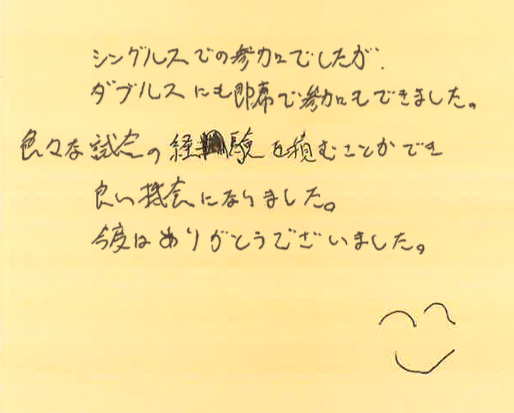 シングルスでの参加でしたが、
ダブルスにも即席で参加もできました。
色々な試合の経験を積むことができ
良い機会になりました。
今度はありがとうございました。